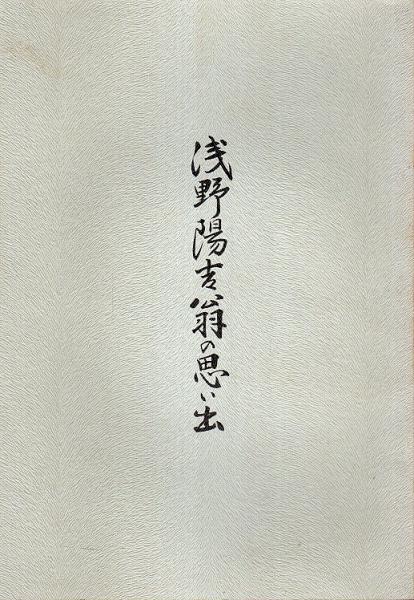 浅野陽吉翁の思い出